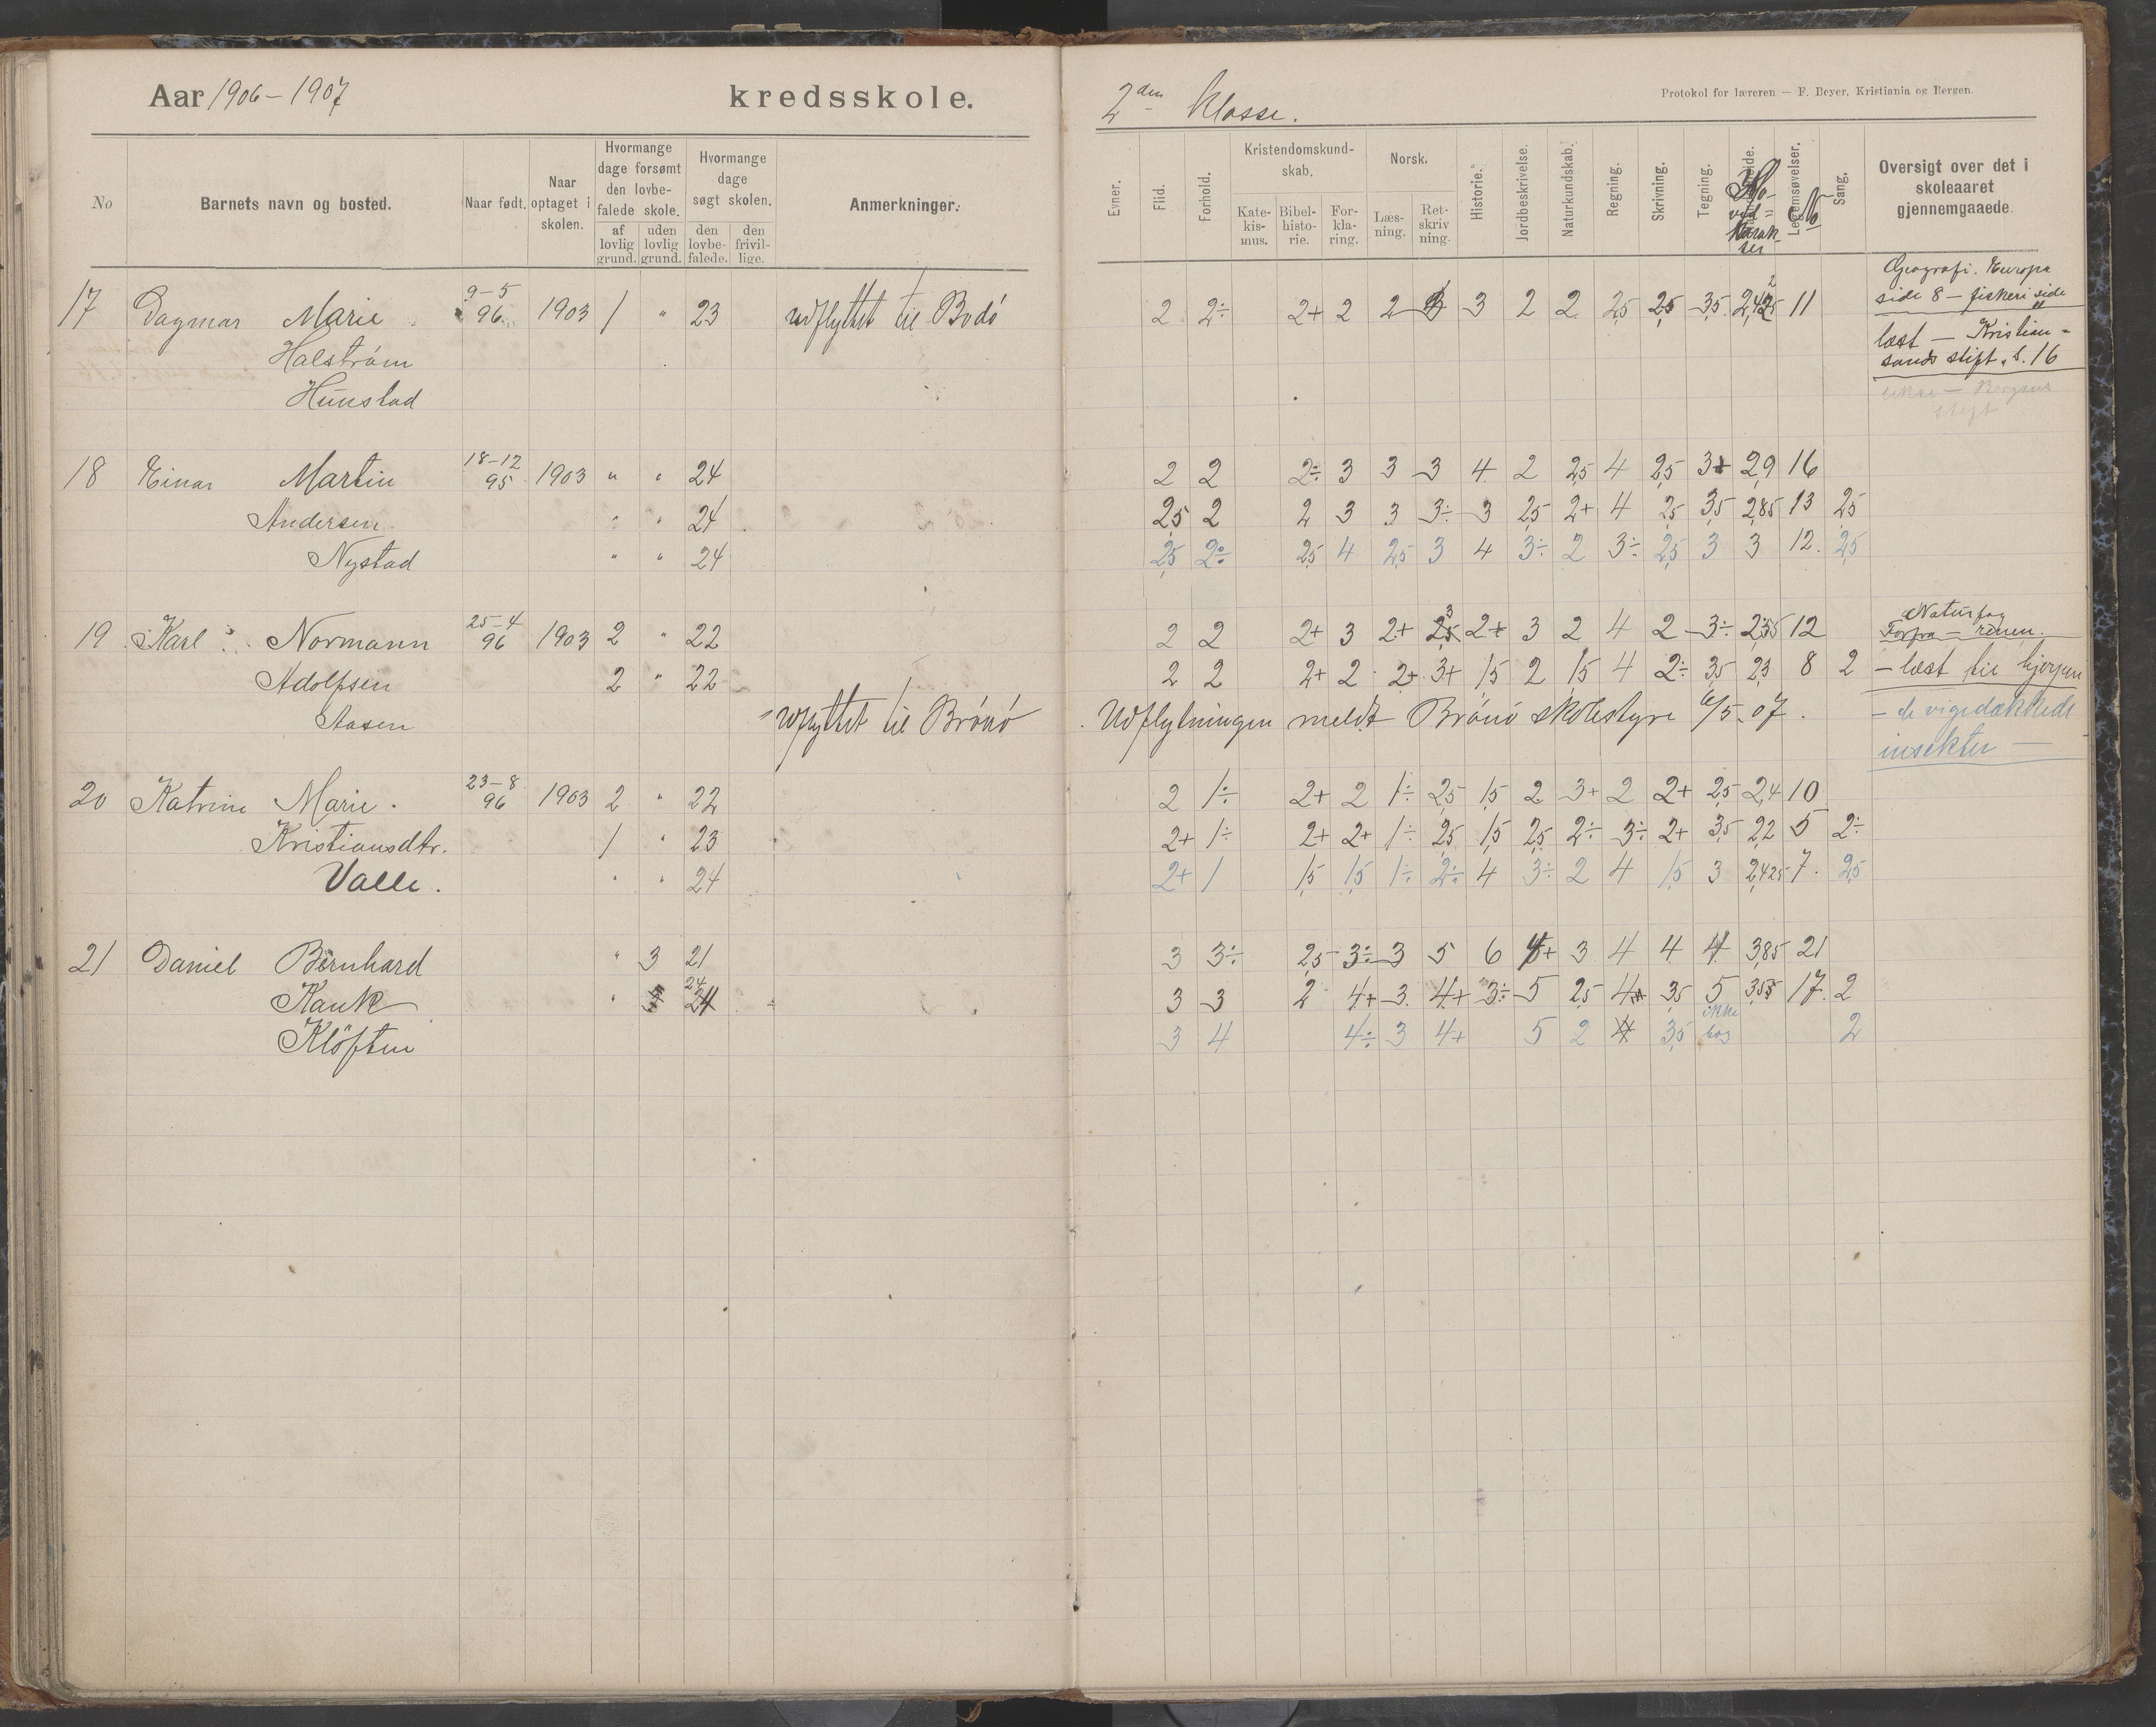 Aar 1906-1907 kredsskole.
2den Klasse.
Protokol for læreren — F. Beyer, Kristiania og Bergen.
No Barnets navn og bosted. Naar født. Naar optaget i skolen. Hvormange dage forsømt den lovbefalede skole. af lovlig grund. uden lovlig grund. Hvormange dage søgt skolen. den lovbefalede. den frivillige. Anmerkninger.
Evner. Flid. Forhold. Kristendomskundskab. Katekismus. Bibelhistorie. Forklaring. Norsk. Læsning. Retskrivning. Historie. Jordbeskrivelse. Naturkundskab. Regning. Skrivning. Tegning. Hovedkarakter Legemsøvelser. Sang. Oversigt over det i skoleaaret gjennemgaaede.
17 Dagmar Marie 9-5 96 1903 1 " 23 udflyttet til Bodö 2 2÷ 2+ 2 2 3 2 2 2,5 2,5 3,5 11
Halström
Hunstad
Geografi. Europa
side 8 - fiskeri side
læst - Kristian-
sands stift. s. 16
Bergens
stift
18 Einar Martin 18-12 95 1903 " " 24 2 2 2÷ 3 3 3 4 2 2,5 4 2,5 3+ 2,9 16
Andersen " " 24 2,5 2 2 3 3 3÷ 3 2,5 2+ 4 2,5 3,5 2,85 13 2,5
Nystad " " 24 2,5 2÷ 2,5 4 2,5 3 4 3÷ 2 3÷ 2,5 3 3 12. 2,5
19 Karl Normann 25-4 96 1903 2 " 22 2 2 2+ 3 2+ 3 2+ 3 2 4 2 3÷ 2,35 12
Adolfsen 2 " 22 2 2 2+ 2 2+ 3+ 1,5 2 1,5 4 2÷ 3,5 2,3 8 2
Aasen udflyttet til Brönö Udflytningen meldt Brönö skolestyre 6/5.07.
Naturfag
Forfra -
- læst til bjergene
- de
insekter -
20 Katrine Marie. 23-8 96 1903 2 " 22 2 1÷ 2+ 2 1÷ 2,5 1,5 2 3+ 2 2+ 2,5 2,4 10
Kristiansdtr. 1 " 23 2+ 1÷ 2+ 2+ 1÷ 2,5 1,5 2,5 2÷ 3÷ 2+ 3,5 2,2 5 2÷
Valle. " " 24 2+ 1 1,5 1,5 1÷ 2÷ 4 3÷ 2 4 1,5 3 2,425 7. 2,5
21 Daniel Bernhard " 3 21 3 3÷ 2,5 3÷ 3 5 6 3 4 4 4 3,85 21
Kauk " 24 3 3 2 4+ 3. 4+ 3÷ 5 2,5 4 3,5 5 3,55 17. 2
Klöften 3 4 4÷ 3 4+ 5 2 3,5 ikke bog 2